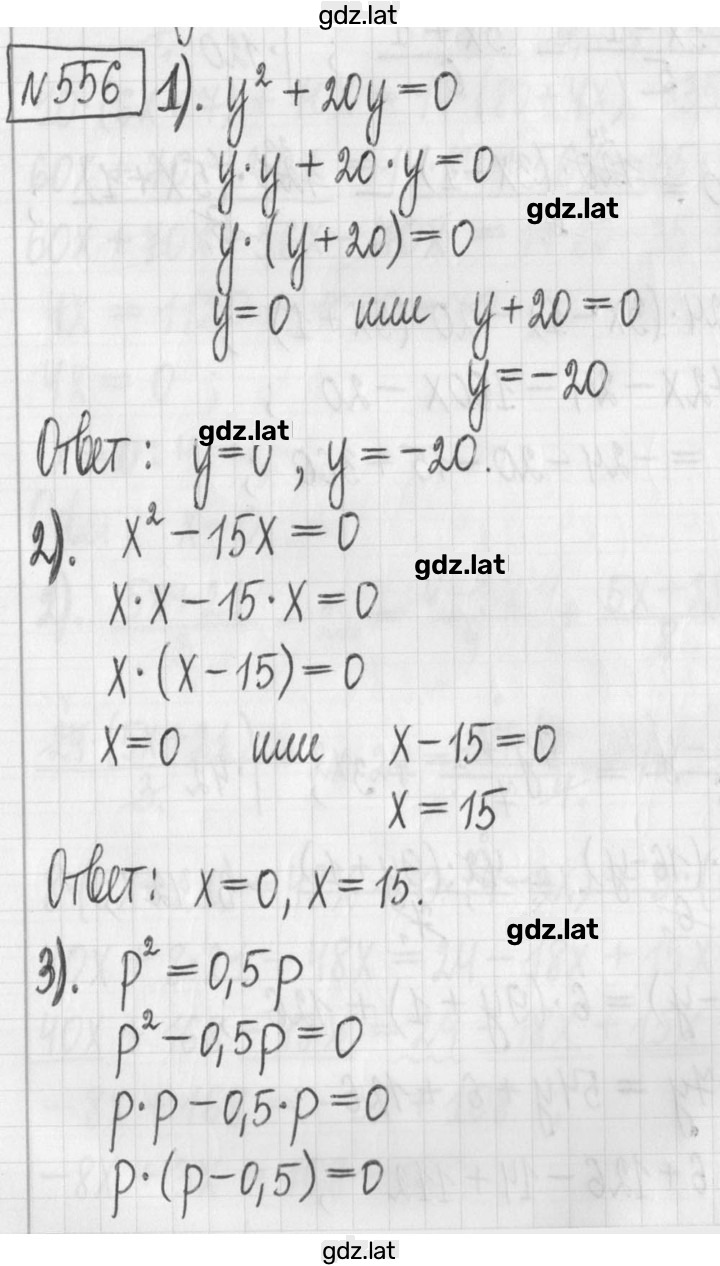 gdz.lat
№556 1). y² + 20y = 0
y·y + 20·y = 0
gdz.lat
y·(y+20) = 0
y=0 или y+20=0
y=-20
Ответ: y=0, y=-20.
gdz.lat
2). x² - 15x = 0
gdz.lat
x·x - 15·x = 0
x·(x-15) = 0
x=0 или x-15=0
x=15
Ответ: x=0, x=15.
gdz.lat
3). p² = 0,5p
p² - 0,5p = 0
p·p - 0,5·p = 0
p·(p-0,5) = 0
gdz.lat